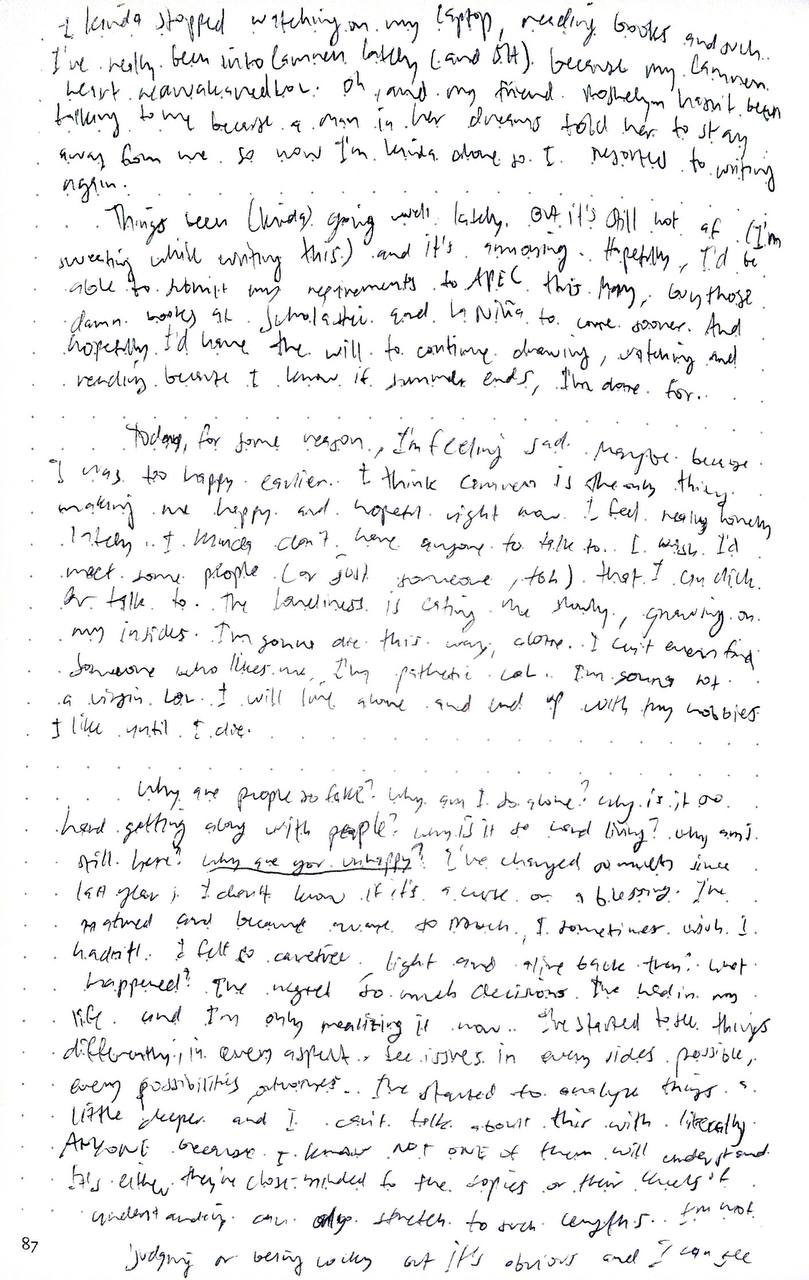 I kinda stopped watching on my laptop, reading books and such.
I've really been into Camren lately (and 5H) because my Camren
heart reawakened lol. Oh, and my friend hasn't been
talking to me because a man in her dreams told her to stay
away from me so now I'm kinda alone so I resorted to writing
again.
Things been (kinda) going well lately. But it's still hot af (I'm
sweating while writing this) and it's annoying. Hopefully, I'd be
able to submit my requirements to APEC this May, buy those
damn books at Scholastic and La Niña to come sooner. And
hopefully I'd have the will to continue drawing, watching and
reading because I know if summer ends, I'm done for.
Today, for some reason, I'm feeling sad. Maybe because
I was too happy earlier. I think Camren is the only thing
making me happy and hopeful right now. I feel really lonely
lately. I kinda don't have anyone to talk to. I wish I'd
meet some people (or just someone, tbh) that I can click
or talk to. The loneliness is eating me slowly, gnawing on
my insides. I'm gonna die this way, alone. I can't even find
someone who likes me, I'm pathetic lol. I'm gonna rot
a virgin lol. I will live alone and end up with my hobbies
I like until I die.
Why are people so fake? Why am I so alone? Why is it so
hard getting along with people? Why is it so hard living? Why am I
still here? Why are you unhappy? I've changed so much since
last year; I don't know if it's a curse or a blessing. I've
matured and became aware so much, I sometimes wish I
hadn't. I felt so carefree, light and alive back then. What
happened? I've regret so much decisions I've had in my
life and I'm only realizing it now. I've started to see things
differently, in every aspect, see issues in every sides possible,
every possibilities, outcomes. I've started to analyze things a
little deeper and I can't talk about this with literally
ANYONE because I know NOT ONE of them will understand.
It's either they're close-minded to the topics or their levels of
understanding can only stretch to such lengths. I'm not
judging or being cocky but it's obvious and I can see
87